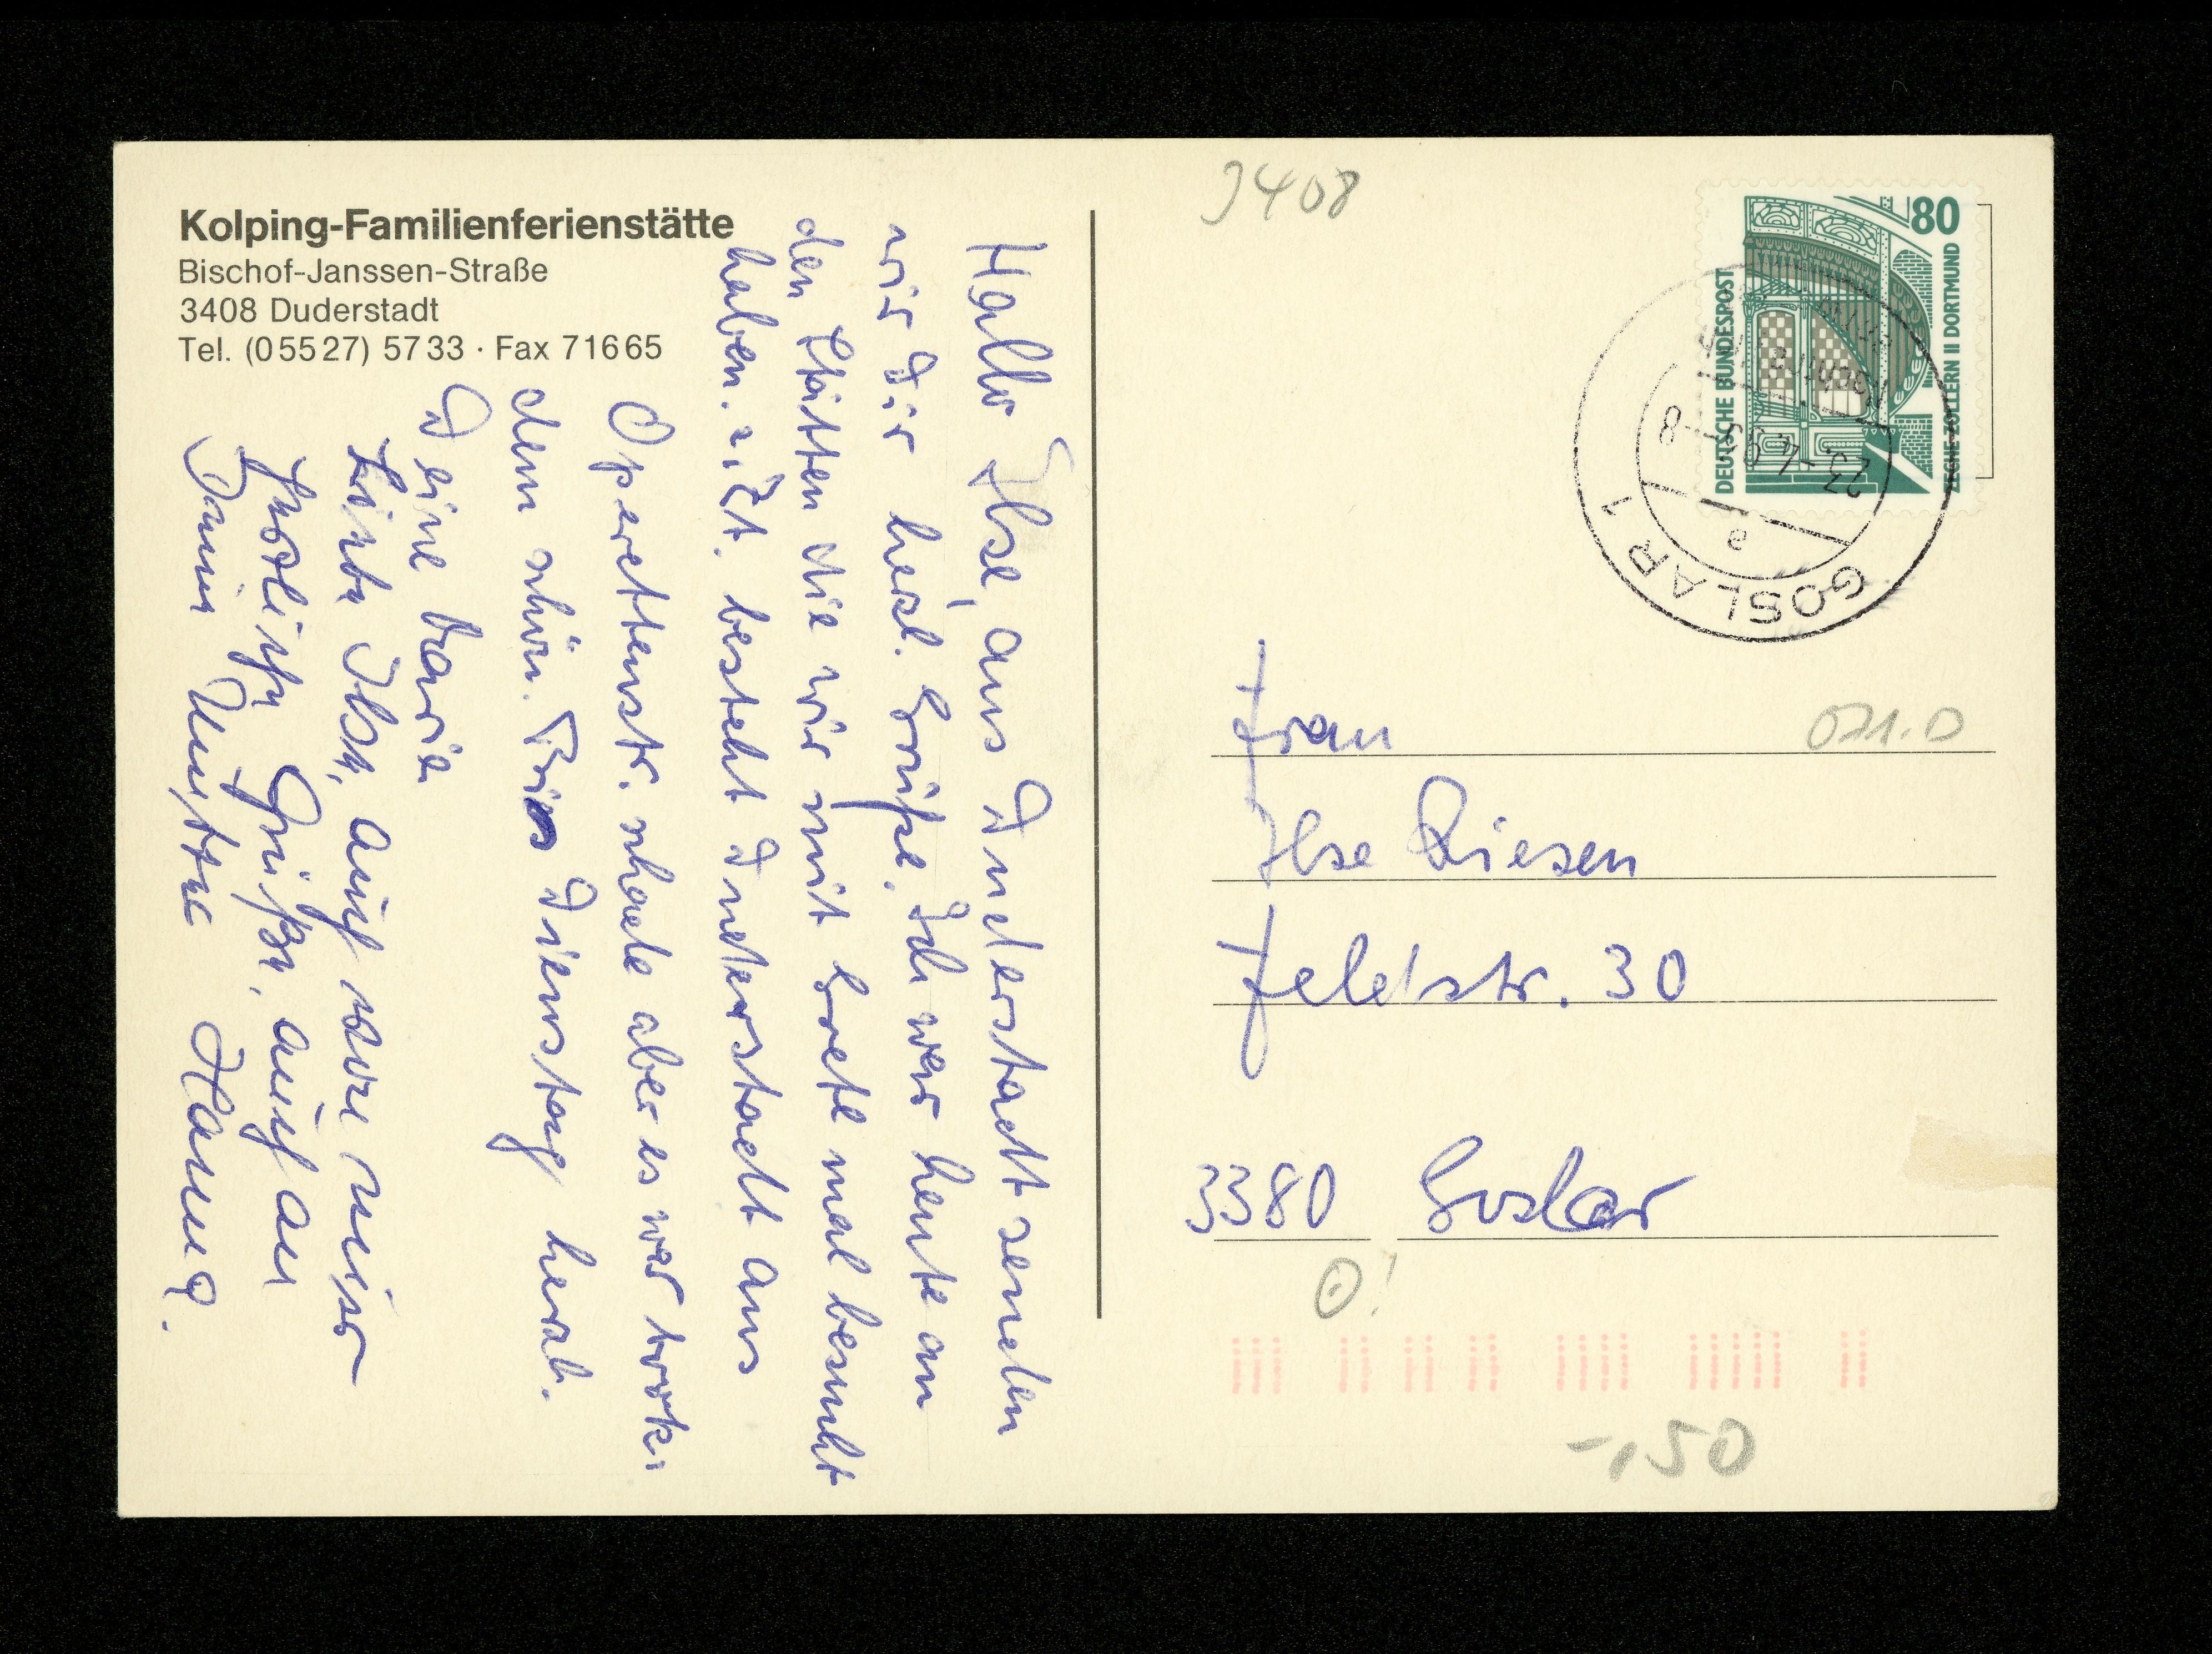 Kolping-Familienferienstätte
Bischof-Janssen-Straße
3408 Duderstadt
Tel. (05527) 5733 · Fax 71665
Hallo Ilse, aus Duderstadt senden
wir Dir herzl. Grüße. Ich war heute an
den Stätten die wir mit Grete mal besucht
haben. z. Zt. besteht Duderstadt aus
Operettenstr. schade aber es war trotz-
dem schön. Bis Dienstag herzl.
Deine Marie
Liebe Ilse, auch von mir
herzliche Grüße, auch an
Deine Mutter Hanna.
3408
80
DEUTSCHE BUNDESPOST
ZECHE ZOLLERN II DORTMUND
GOSLAR 1
23.-4.
8
071.0
Frau
Ilse Riesen
Feldstr. 30
3380 Goslar
0!
-,50